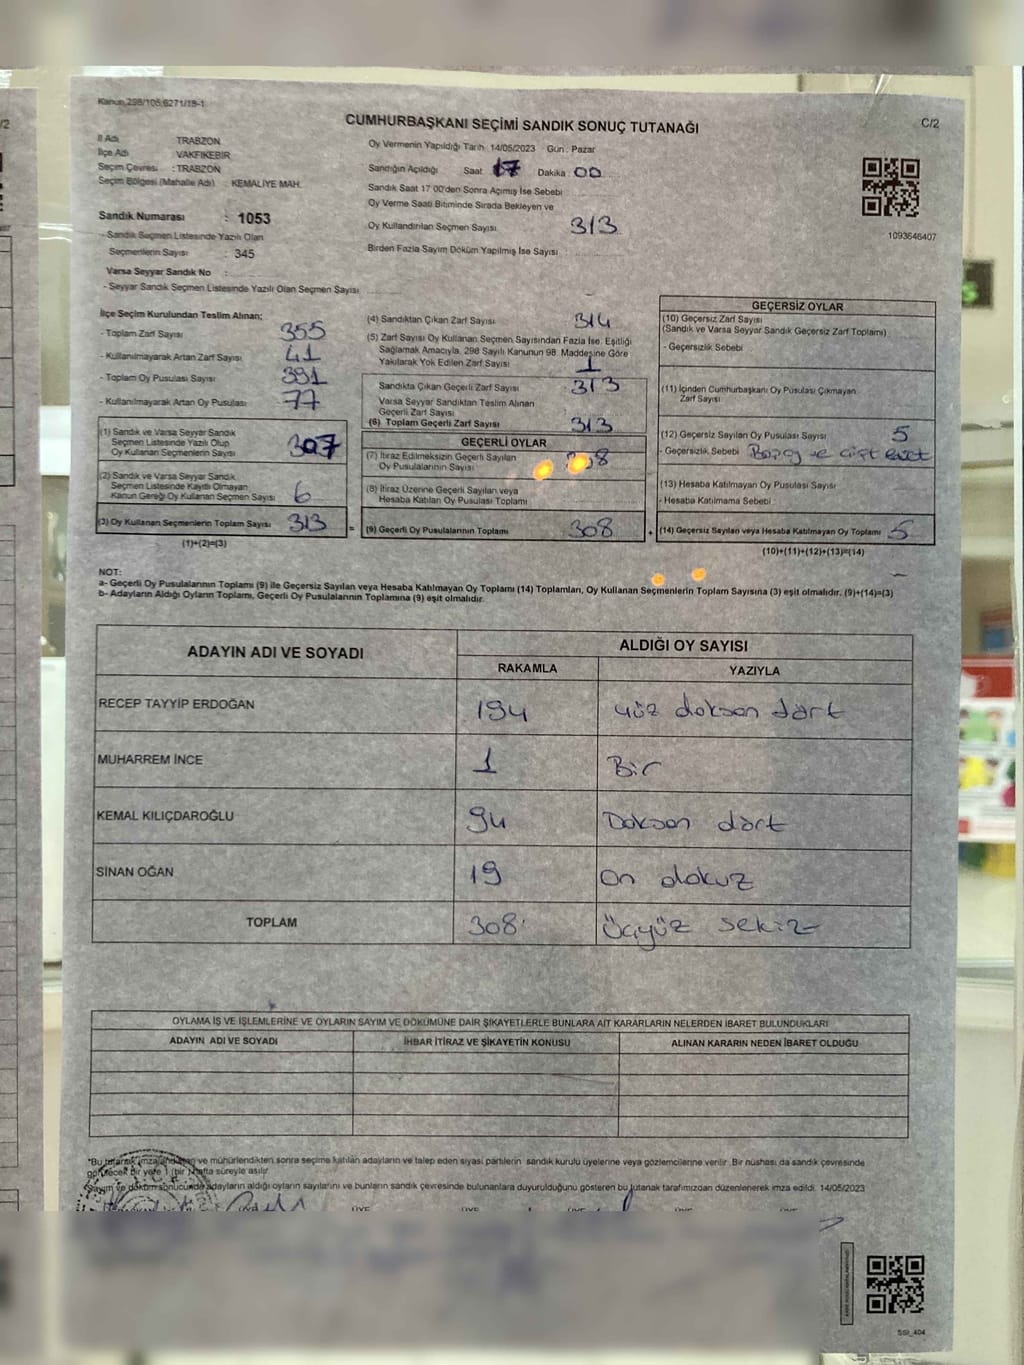 Kanun,298/105,6271/18-1
CUMHURBAŞKANI SEÇİMİ SANDIK SONUÇ TUTANAĞI
C/2
İl Adı TRABZON
İlçe Adı VAKFIKEBİR
Seçim Çevresi : TRABZON
Seçim Bölgesi (Mahalle Adı) : KEMALİYE MAH.
Sandık Numarası : 1053
- Sandık Seçmen Listesinde Yazılı Olan
Seçmenlerin Sayısı : 345
Varsa Seyyar Sandık No :
- Seyyar Sandık Seçmen Listesinde Yazılı Olan Seçmen Sayısı
Oy Vermenin Yapıldığı Tarih 14/05/2023 Gün : Pazar
Sandığın Açıldığı Saat 17 Dakika : 00
Sandık Saat 17 00'den Sonra Açımış İse Sebebi
Oy Verme Saati Bitiminde Sırada Bekleyen ve
Oy Kullandırılan Seçmen Sayısı 313
Birden Fazla Sayım Döküm Yapılmış İse Sayısı
1093646407
İlçe Seçim Kurulundan Teslim Alınan;
- Toplam Zarf Sayısı 355
- Kullanılmayarak Artan Zarf Sayısı 41
- Toplam Oy Pusulası Sayısı 391
- Kullanılmayarak Artan Oy Pusulası 77
(1) Sandık ve Varsa Seyyar Sandık
Seçmen Listesinde Yazılı Olup
Oy Kullanan Seçmenlerin Sayısı 307
(2) Sandık ve Varsa Seyyar Sandık
Seçmen Listesinde Kayıtlı Olmayan
Kanun Gereği Oy Kullanan Seçmen Sayısı 6
(3) Oy Kullanan Seçmenlerin Toplam Sayısı 313
(1)+(2)=(3)
(4) Sandıktan Çıkan Zarf Sayısı 314
(5) Zarf Sayısı Oy Kullanan Seçmen Sayısından Fazla İse, Eşitliği
Sağlamak Amacıyla, 298 Sayılı Kanunun 98. Maddesine Göre
Yakılarak Yok Edilen Zarf Sayısı 1
Sandıkta Çıkan Geçerli Zarf Sayısı 313
Varsa Seyyar Sandıktan Teslim Alınan
Geçerli Zarf Sayısı
(6) Toplam Geçerli Zarf Sayısı 313
GEÇERLİ OYLAR
(7) İtiraz Edilmeksizin Geçerli Sayılan
Oy Pusulalarının Sayısı
(8) İtiraz Üzerine Geçerli Sayılan veya
Hesaba Katılan Oy Pusulası Toplamı
= (9) Geçerli Oy Pusulalarının Toplamı 308 +
GEÇERSİZ OYLAR
(10) Geçersiz Zarf Sayısı
(Sandık ve Varsa Seyyar Sandık Geçersiz Zarf Toplamı)
- Geçersizlik Sebebi
(11) İçinden Cumhurbaşkanı Oy Pusulası Çıkmayan
Zarf Sayısı
(12) Geçersiz Sayılan Oy Pusulası Sayısı 5
- Geçersizlik Sebebi ve çift evet
(13) Hesaba Katılmayan Oy Pusulası Sayısı
- Hesaba Katılmama Sebebi
(14) Geçersiz Sayılan veya Hesaba Katılmayan Oy Toplamı 5
(10)+(11)+(12)+(13)=(14)
NOT:
a- Geçerli Oy Pusulalarının Toplamı (9) ile Geçersiz Sayılan veya Hesaba Katılmayan Oy Toplamı (14) Toplamları, Oy Kullanan Seçmenlerin Toplam Sayısına (3) eşit olmalıdır. (9)+(14)=(3)
b- Adayların Aldığı Oyların Toplamı, Geçerli Oy Pusulalarının Toplamına (9) eşit olmalıdır.
ADAYIN ADI VE SOYADI ALDIĞI OY SAYISI
RAKAMLA YAZIYLA
RECEP TAYYİP ERDOĞAN 194 yüz doksan dört
MUHARREM İNCE 1 Bir
KEMAL KILIÇDAROĞLU 94 Doksan dört
SİNAN OĞAN 19 On dokuz
TOPLAM 308 Üçyüz sekiz
OYLAMA İŞ VE İŞLEMLERİNE VE OYLARIN SAYIM VE DÖKÜMÜNE DAİR ŞİKAYETLERLE BUNLARA AİT KARARLARIN NELERDEN İBARET BULUNDUKLARI
ADAYIN ADI VE SOYADI İHBAR İTİRAZ VE ŞİKAYETİN KONUSU ALINAN KARARIN NEDEN İBARET OLDUĞU
*Bu tutanak ve mühürlendikten sonra seçime katılan adayların ve talep eden siyasi partilerin sandık kurulu üyelerine veya gözlemcilerine verilir. Bir nüshası da sandık çevresinde
görülecek bir yere 1 (bir) hafta süreyle asılır.
Sayım ve döküm sonucunda adayların aldığı oyların sayılarını ve bunların sandık çevresinde bulunanlara duyurulduğunu gösteren bu tutanak tarafımızdan düzenlenerek imza edildi. 14/05/2023
ÜYE ÜYE ÜYE ÜYE ÜYE ÜYE
SSI_404